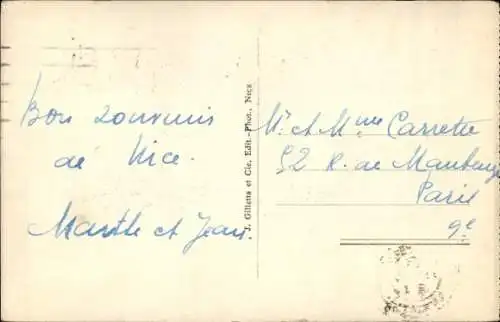 Bon souvenir
de Nice.
Marthe et Jean.
J. Gilletta et Cie, Edit.-Phot., Nice
Mr et Mme Carrette
52 R. de Maubeuge
Paris
9e